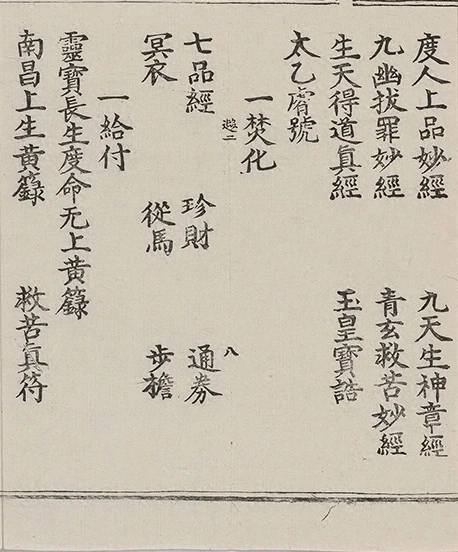 度人上品妙經　九天生神章經
九幽拔罪妙經　青玄救苦妙經
生天得道眞經　玉皇寶誥
太乙齋號
一焚化
七品經　珍財　通券
冥衣　從馬　步擔
一給付
靈寶長生度命无上黃籙
南昌上生黃籙　救苦眞符
八